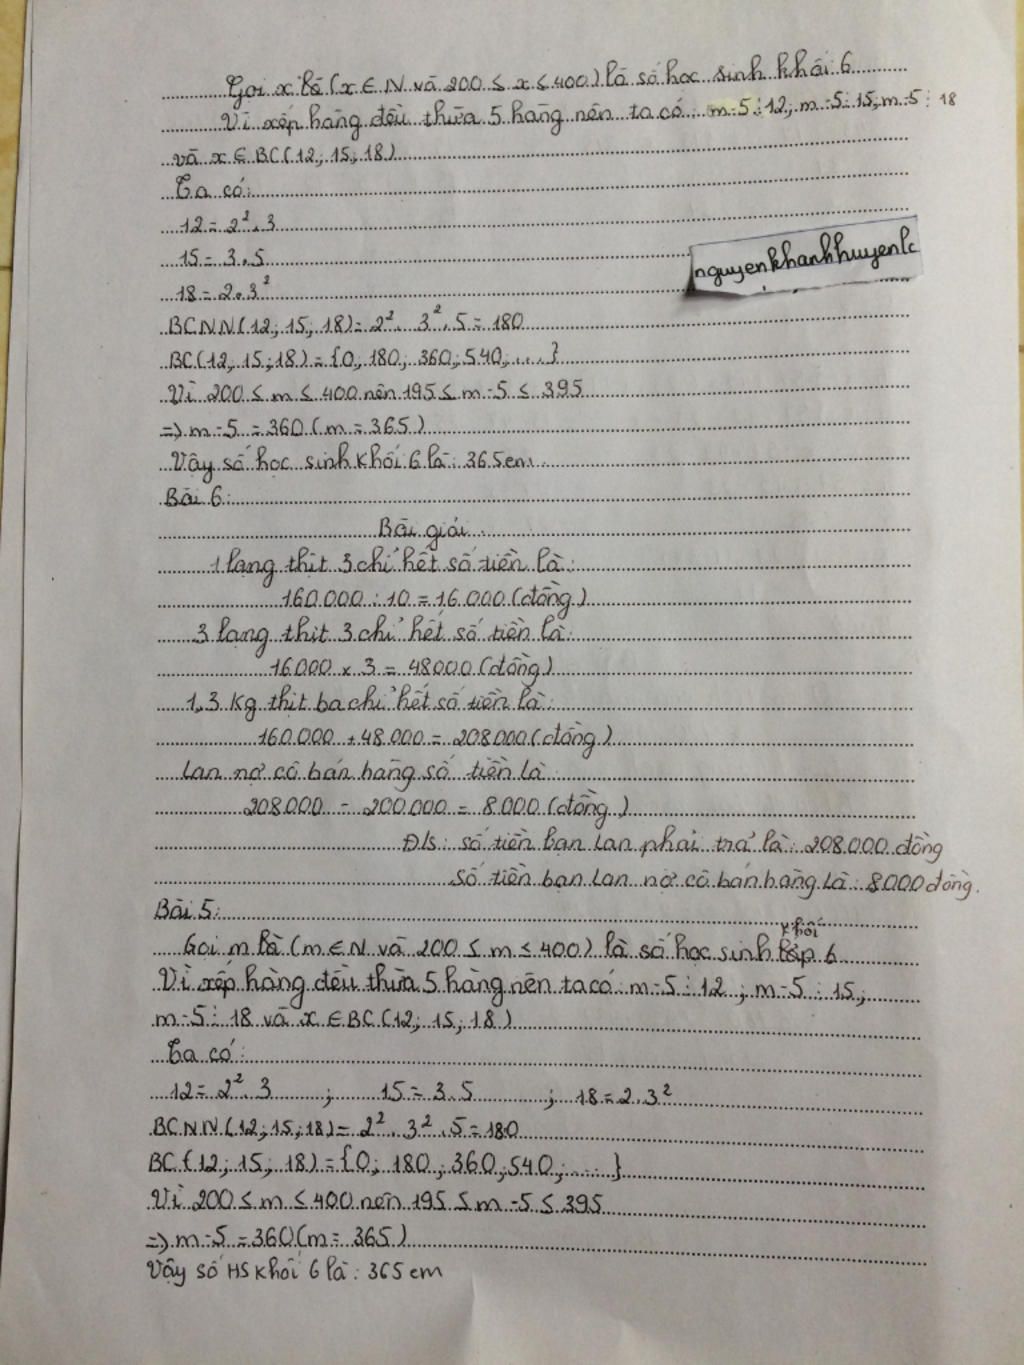 Gọi x là (x ∈ N và 200 ≤ x ≤ 400) là số học sinh khối 6
Vì xếp hàng đều thừa 5 hàng nên ta có: m-5⋮12; m-5⋮15; m-5⋮18
và x ∈ BC(12; 15; 18)
Ta có:
12 = 2². 3
15 = 3.5
18 = 2.3²
nguyenkhanhhuyenlc
BCNN(12; 15; 18) = 2². 3². 5 = 180
BC(12; 15; 18) = {0; 180; 360; 540; ...}
Vì 200 ≤ m ≤ 400 nên 195 ≤ m-5 ≤ 395
=> m-5 = 360 (m = 365)
Vậy số học sinh khối 6 là: 365 em.
Bài 6:
Bài giải:
1 lạng thịt 3 chỉ hết số tiền là:
160.000 : 10 = 16.000 (đồng)
3 lạng thịt 3 chỉ hết số tiền là:
16.000 x 3 = 48000 (đồng)
1,3 kg thịt ba chỉ hết số tiền là:
160.000 + 48.000 = 208.000 (đồng)
Lan nợ cô bán hàng số tiền là
208.000 - 200.000 = 8.000 (đồng)
Đ/s: số tiền bạn Lan phải trả là: 208.000 đồng
số tiền bạn Lan nợ cô bán hàng là: 8.000 đồng.
Bài 5:
khối
Gọi m là (m ∈ N và 200 ≤ m ≤ 400) là số học sinh lớp 6
Vì xếp hàng đều thừa 5 hàng nên ta có: m-5⋮12; m-5⋮15;
m-5⋮18 và x ∈ BC(12; 15; 18)
Ta có:
12 = 2². 3 ; 15 = 3.5 ; 18 = 2.3²
BCNN(12; 15; 18) = 2². 3². 5 = 180
BC(12; 15; 18) = {0; 180; 360; 540; ....}
Vì 200 ≤ m ≤ 400 nên 195 ≤ m-5 ≤ 395
=> m-5 = 360 (m = 365)
Vậy số HS khối 6 là: 365 em